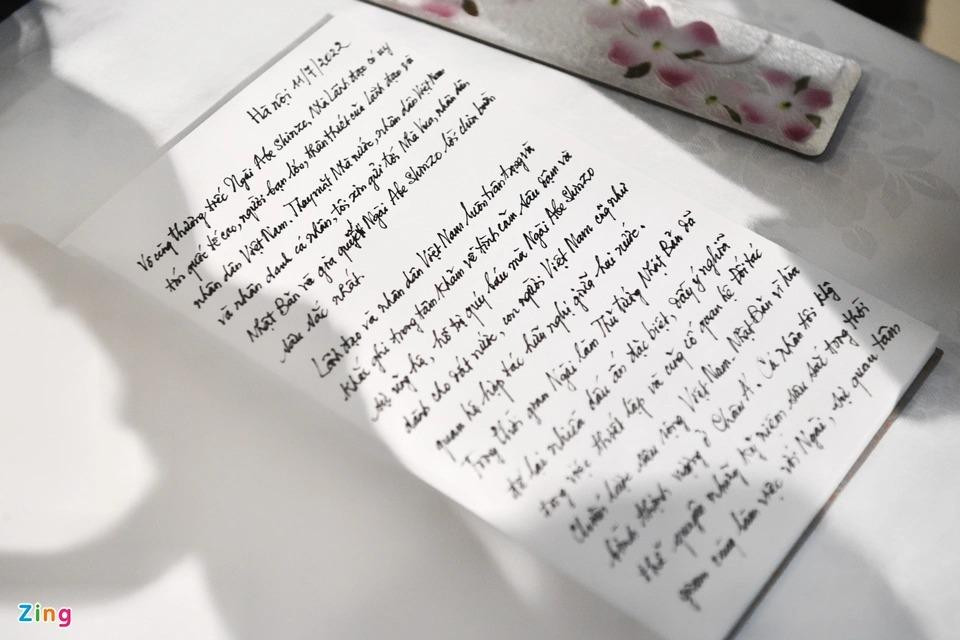 Hà nội 11/7/2022
Vô cùng thương tiếc Ngài Abe Shinzo, Nhà Lãnh đạo có uy
tín quốc tế cao, người bạn lớn, thân thiết của Lãnh đạo và
nhân dân Việt Nam. Thay mặt Nhà nước, nhân dân Việt Nam
và nhân danh cá nhân, tôi xin gửi tới Nhà Vua, nhân dân
Nhật Bản và gia quyến Ngài Abe Shinzo lời chia buồn
sâu sắc nhất
Lãnh đạo và nhân dân Việt Nam luôn trân trọng và
khắc ghi trong tâm khảm về tình cảm sâu đậm và
sự ủng hộ, hỗ trợ quý báu mà Ngài Abe Shinzo
dành cho đất nước, con người Việt Nam cũng như
quan hệ hợp tác hữu nghị giữa hai nước.
Trong thời gian Ngài làm Thủ tướng Nhật Bản đã
để lại nhiều dấu ấn đặc biệt, đầy ý nghĩa
trong việc thiết lập và củng cố quan hệ Đối tác
Chiến lược sâu rộng Việt Nam. Nhật Bản vì hòa
bình thịnh vượng ở Châu Á. Cá nhân tôi khg
thể quên những kỷ niệm sâu sắc trong thời
gian cùng làm việc với Ngài, sự quan tâm
Zing